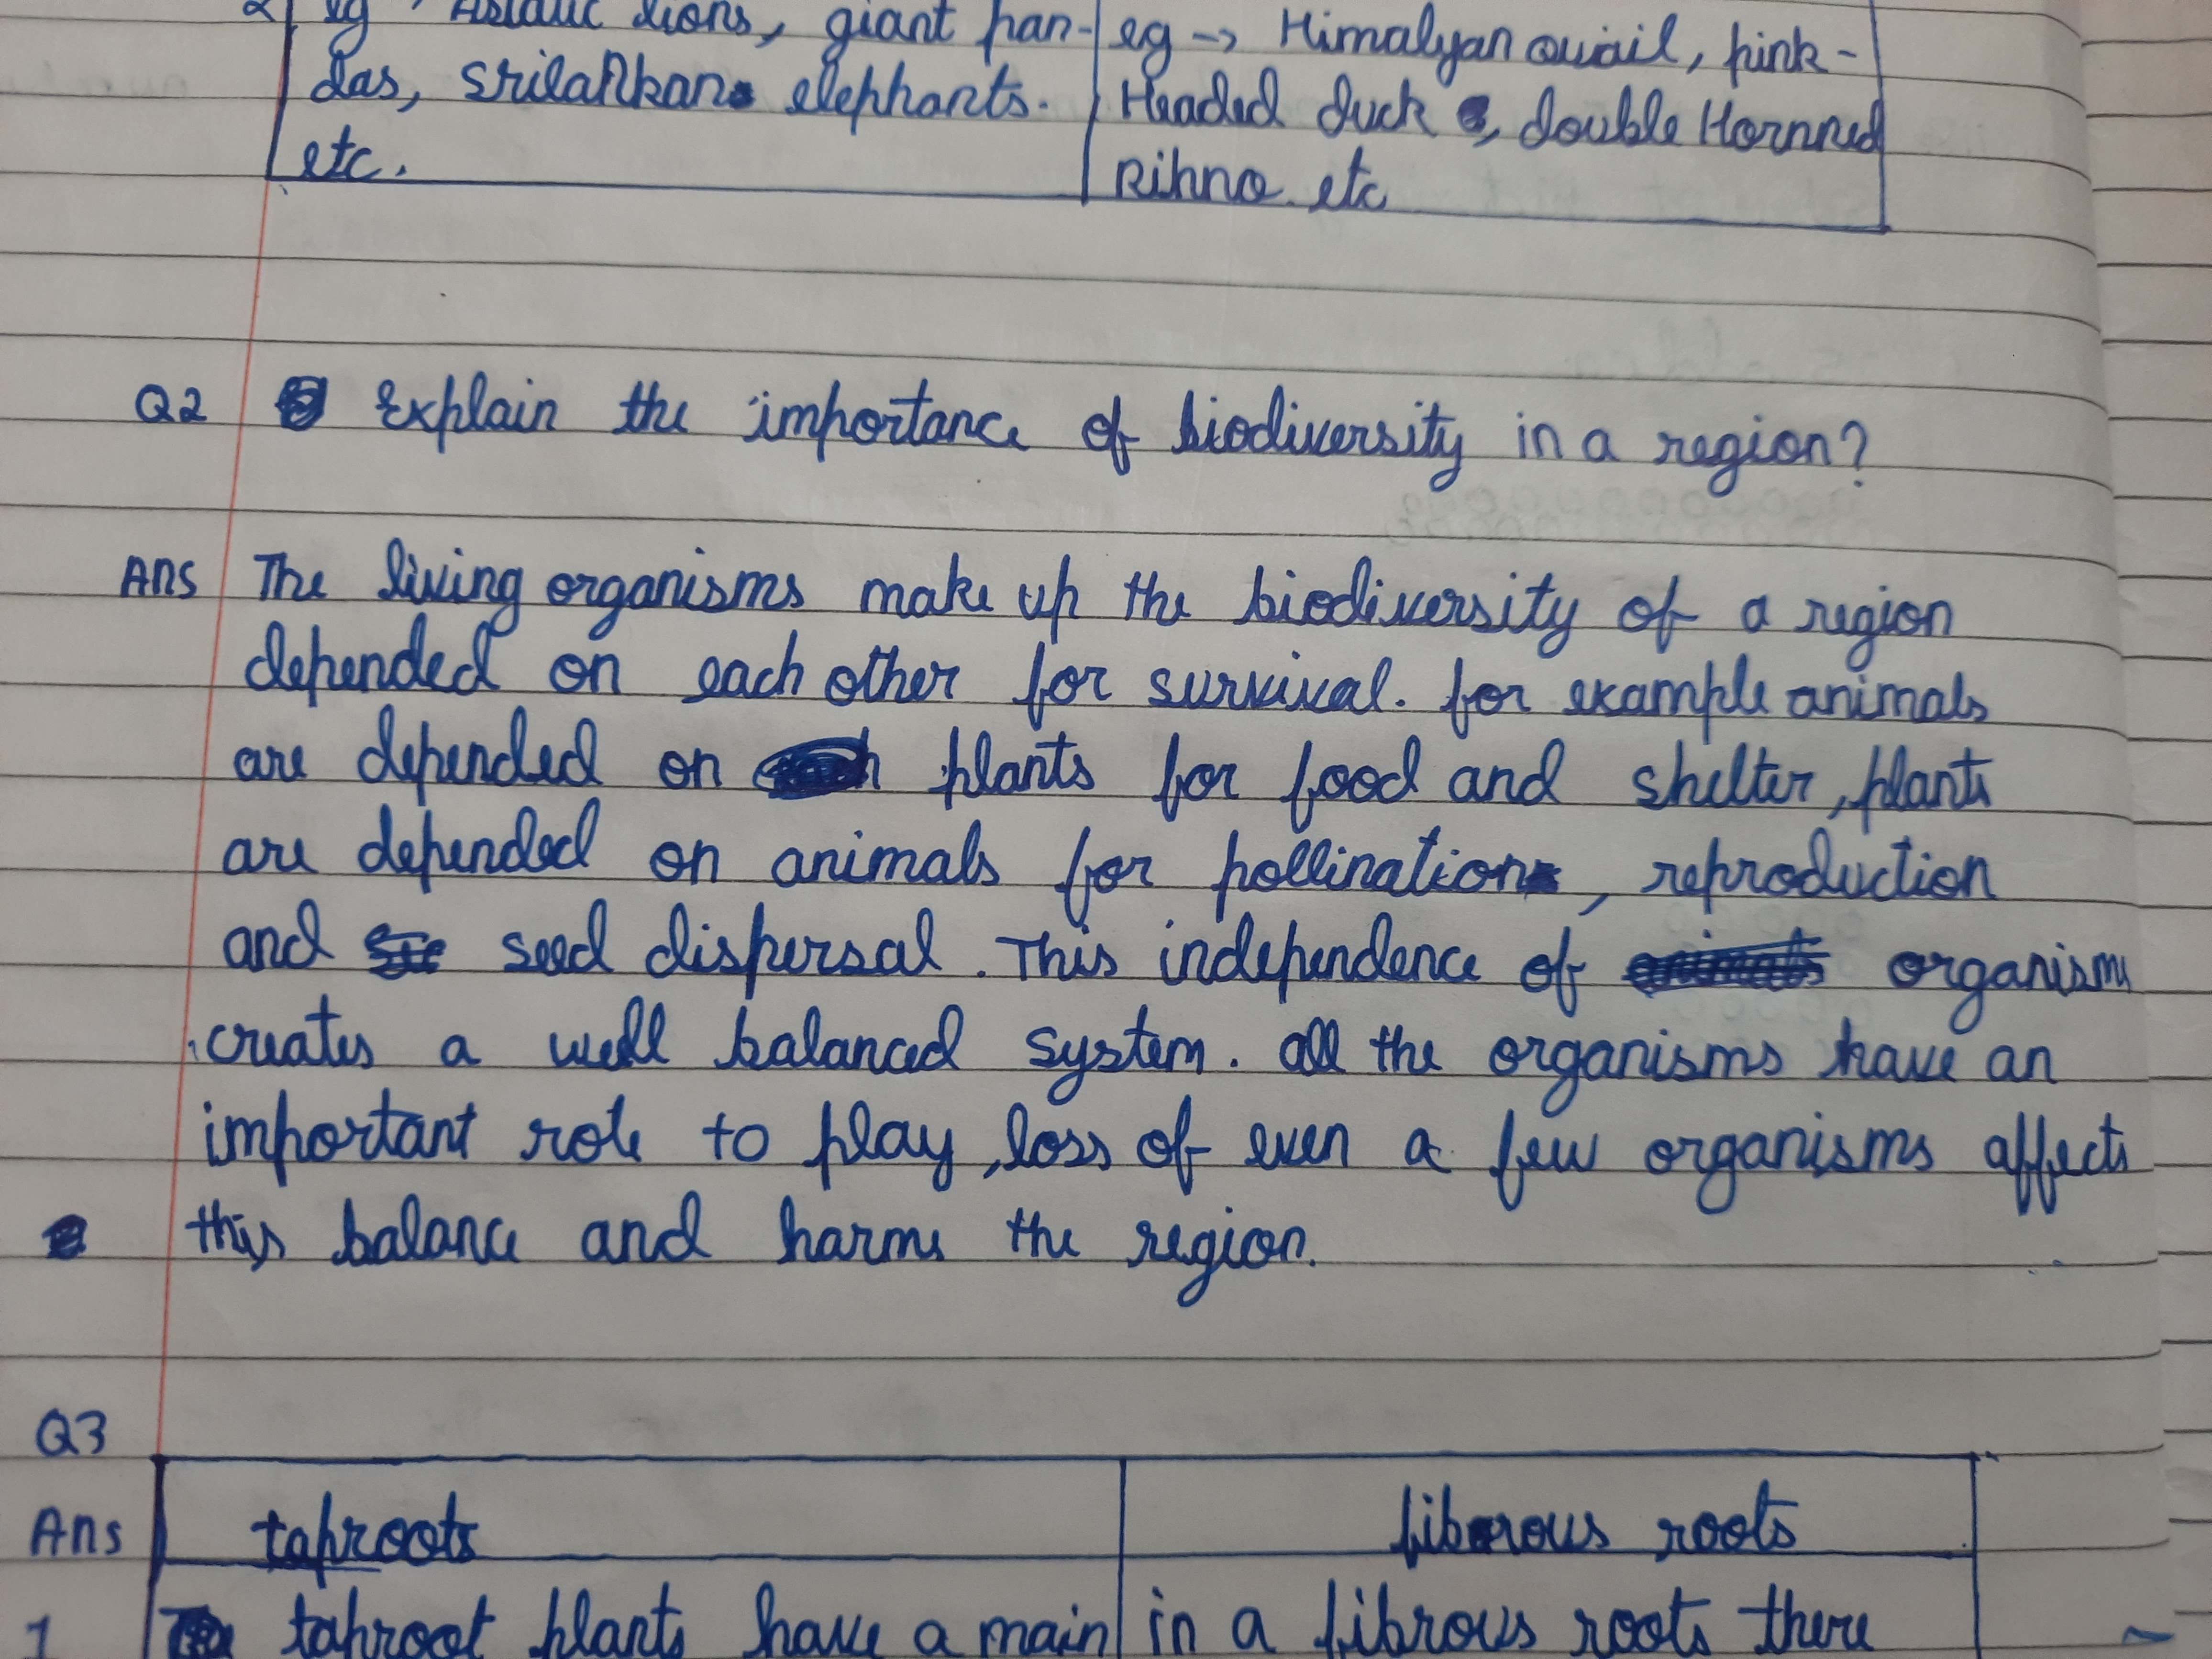 2 eg → Asiatic lions, giant pan- eg → Himalyan quail, pink-
das, srilankan elephants. Headed duck, double Hornned
etc. Rihno. etc
Q2 Explain the importance of biodiversity in a region?
Ans The living organisms make up the biodiversity of a region
depended on each other for survival. for example animals
are depended on plants for food and shelter, plants
are depended on animals for pollination, reproduction
and seed dispersal. This independence of organisms
creates a well balanced system. all the organisms have an
important role to play, loss of even a few organisms affects
this balance and harms the region.
Q3
Ans taproots fibrous roots
1 taproot plants have a main in a fibrous roots there